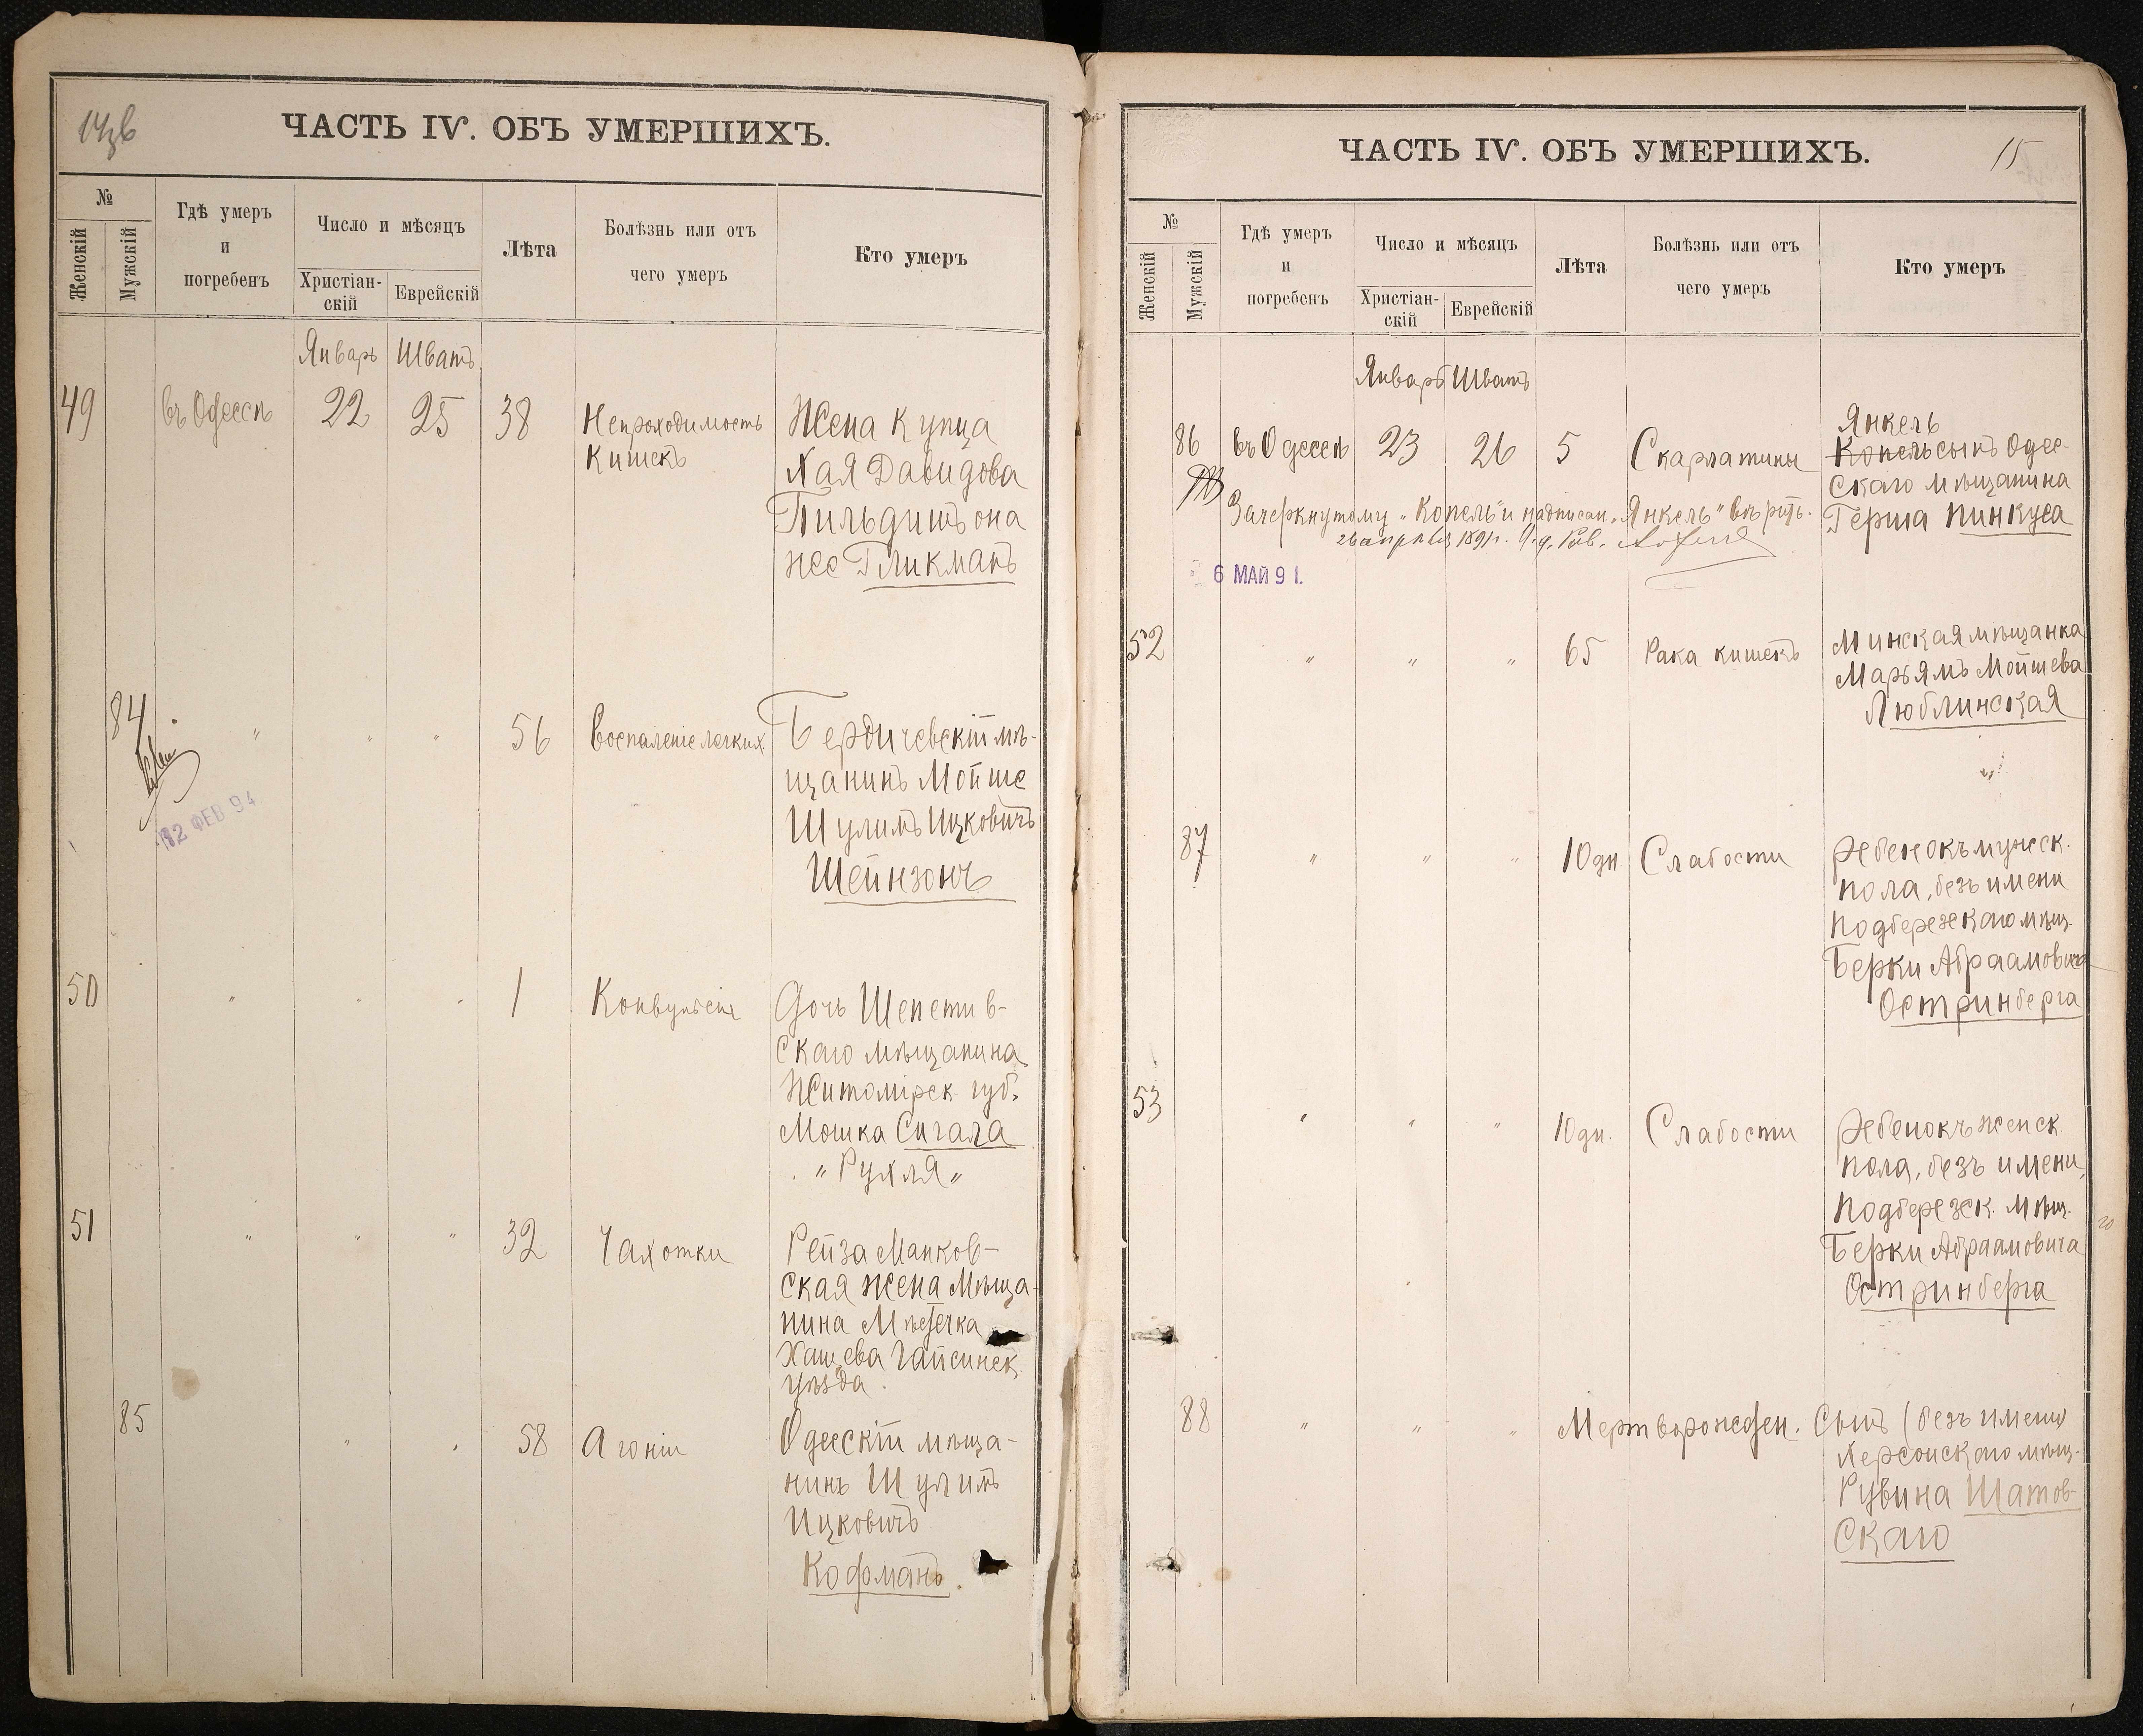 14об
ЧАСТЬ IV. ОБЪ УМЕРШИХЪ.
№
Женскій
Мужскій
Гдѣ умеръ
и
погребенъ
Число и мѣсяцъ
Христіан-
скій
Еврейскій
Лѣта
Болѣзнь или отъ
чего умеръ
Кто умеръ
Январь Шватъ
49 въ Одессѣ 22 25 38 Непроходимость
кишекъ
Жена купца
Хая Давидова
она
же Гликманъ
84 " " " 56 Воспаленіе легких
Бердичевскій мѣ-
щанинъ Мойше
Шулимъ Ицковичъ
Шейнзонъ
12 ФЕВ 94
50 " " " 1 Конвульсія
Дочь Шепетив-
скаго мѣщанина
Житомірск. губ.
Мошка Сигала
"Рухля"
51 " " " 32 Чахотки
Рейза Манков-
ская жена мѣща-
нина Мѣстечка
Хащева Гайсинск.
уѣзда
85 " " 58 Агоніи
Одесскій мѣща-
нинъ Шулимъ
Ицковичъ
Кофманъ.
ЧАСТЬ IV. ОБЪ УМЕРШИХЪ.
15
№
Женскій
Мужскій
Гдѣ умеръ
и
погребенъ
Число и мѣсяцъ
Христіан-
скій
Еврейскій
Лѣта
Болѣзнь или отъ
чего умеръ
Кто умеръ
Январь Шватъ
86 въ Одессѣ 23 26 5 Скарлатины
Янкель
Копель сынъ Одес-
скаго мѣщанина
Герша Пинкуса
Зачеркнутому "Копель" и надписан. "Янкель" вѣрить.
26 апрѣля 1891 г. И. д. Рав.
6 МАЙ 91.
52 " " " 65 Рака кишекъ
Минская мѣщанка
Марьямъ Мойшева
Люблинская
87 " " " 10 дн Слабости
Ребенокъ мужск.
пола, безъ имени
Подберезскаго мѣщ.
Берки Абраамовича
Остринберга
53 " " " 10 дн. Слабости
Ребенокъ женск.
пола, безъ имени,
Подберезск. мѣщ.
Берки Абраамовича
Остринберга
88 " " " Мертворожден. Сынъ (безъ имени)
Херсонскаго мѣщ.
Рувина Шатов-
скаго